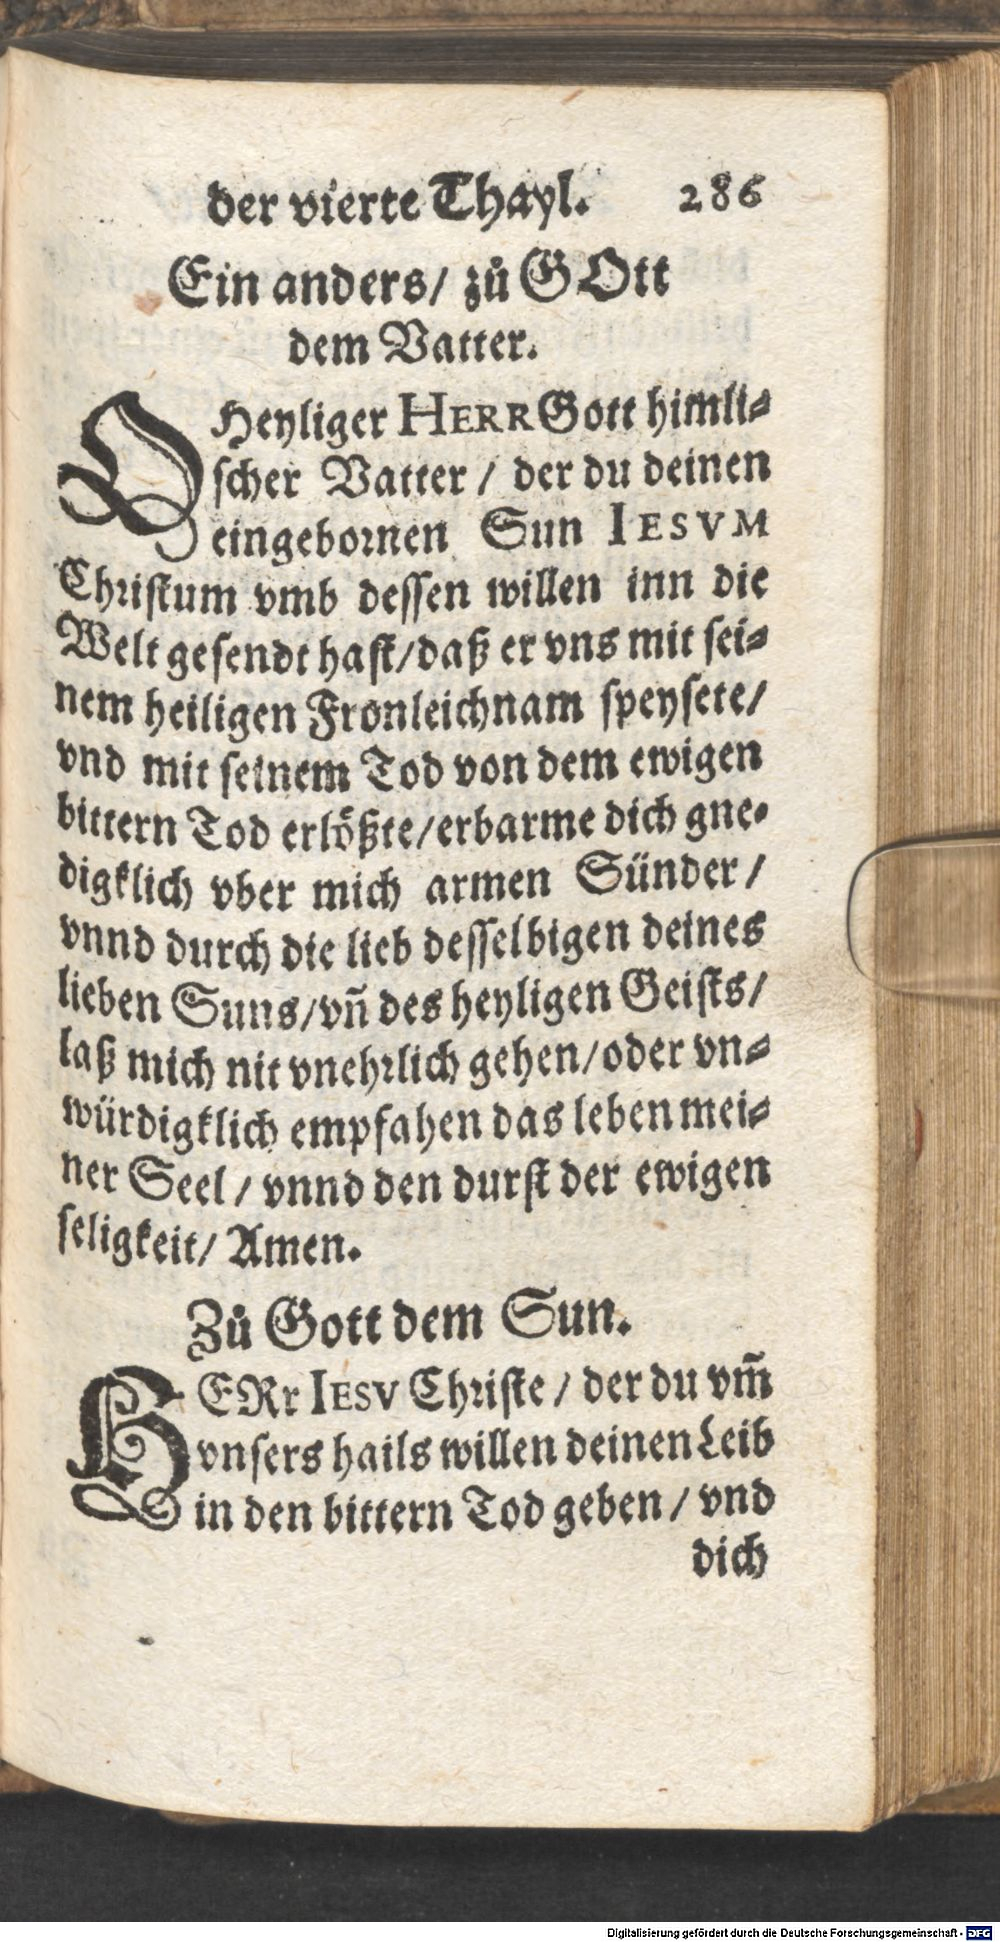 der vierte Thayl. 286
Ein anders/ zů GOtt
dem Vatter.
O Heyliger HERR Gott himli⸗
scher Vatter / der du deinen
eingebornen Sun IESVM
Christum vmb dessen willen inn die
Welt gesendt hast/daß er vns mit sei⸗
nem heiligen Fronleichnam speysete/
vnd mit seinem Tod von dem ewigen
bittern Tod erlößte/erbarme dich gne⸗
digklich vber mich armen Sünder/
vnnd durch die lieb desselbigen deines
lieben Suns/vñ des heyligen Geists/
laß mich nit vnehrlich gehen/oder vn⸗
würdigklich empfahen das leben mei⸗
ner Seel / vnnd den durst der ewigen
seligkeit/ Amen.
Zů Gott dem Sun.
HERr IESV Christe / der du vm̃
vnsers hails willen deinen Leib
in den bittern Tod geben / vnd
dich
Digitalisierung gefördert durch die Deutsche Forschungsgemeinschaft - DFG